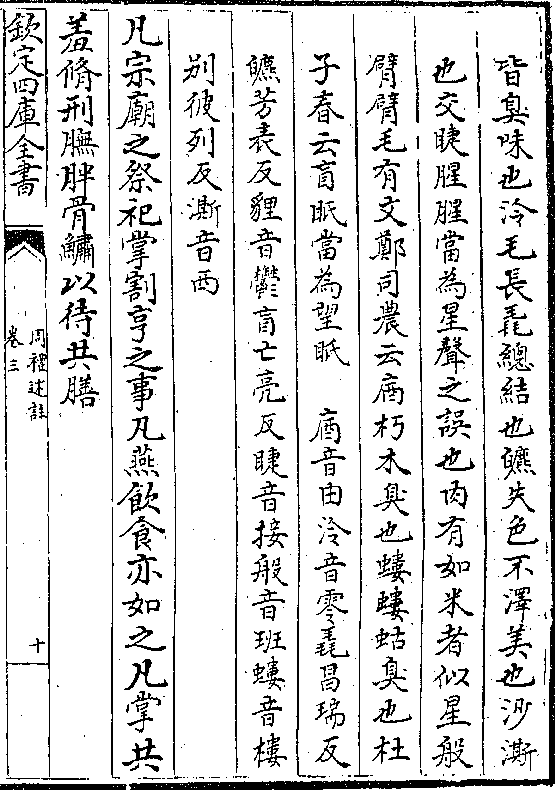 皆臭味也泠毛長毳總結也皫失色不澤美也沙澌
也交睫腥腥當為星聲之誤也肉有如米者似星般
臂臂毛有文鄭司農云庮朽木臭也螻螻蛄臭也杜
子春云盲眡當為望眡　庮音由泠音零毳昌瑞反
皫芳表反貍音鬱盲亡亮反睫音接般音班螻音樓
别彼列反澌音西
凡宗廟之祭祀掌割亨之事凡燕飲食亦如之凡掌共
羞脩刑膴胖骨鱐以待共膳
欽定四庫全書
周禮述註
卷三
十